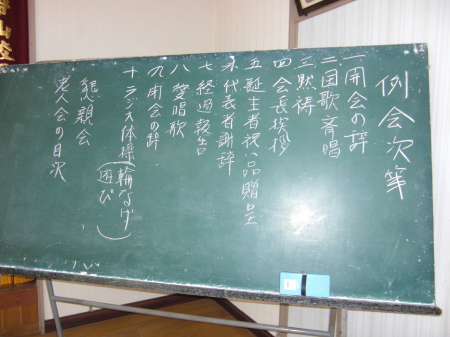 例会次第
一開会の辞
二国歌斉唱
三黙祷
四会長挨拶
五誕生者祝い品贈呈
六代表者謝辞
七経過報告
八愛唱歌
九閉会の辞
十ラジオ体操(輪なげ遊び)
懇親会
老人会の目次